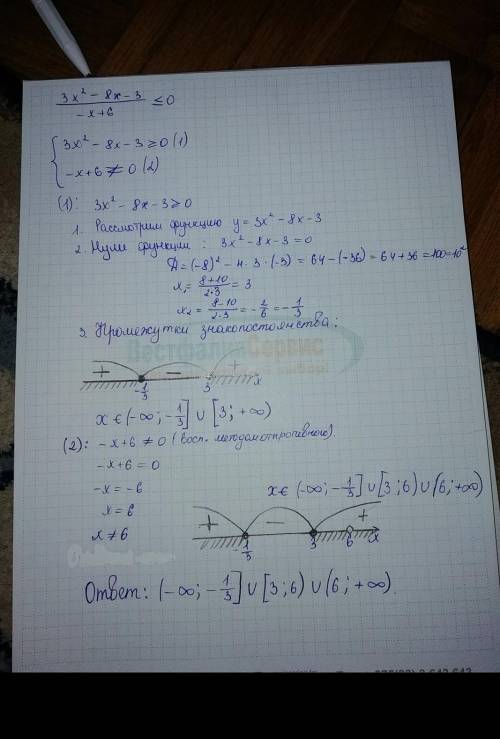 3x² - 8x - 3
-x+6
≤ 0
{ 3x² - 8x - 3 ≥ 0 (1)
-x+6 ≠ 0 (2)
(1): 3x² - 8x - 3 ≥ 0
1. Рассмотрим функцию y = 3x² - 8x - 3
2. Нули функции : 3x² - 8x - 3 = 0
Д = (-8)² - 4 · 3 · (-3) = 64 - (-36) = 64 + 36 = 100 = 10²
x₁ = (8+10)/(2·3) = 3
x₂ = (8-10)/(2·3) = -2/6 = -1/3
3. Промежутки знакопостоянства :
ВестфалияСервис
+ - +
-1/3 3 x
x ∈ (-∞; -1/3] ∪ [3; +∞)
(2): -x+6 ≠ 0 (восп. методом отпротивного).
-x+6 = 0
-x = -6
x = 6
x ≠ 6
x ∈ (-∞; -1/3] ∪ [3; 6) ∪ (6; +∞)
+ - +
-1/3 3 6 x
Ответ: (-∞; -1/3] ∪ [3; 6) ∪ (6; +∞).